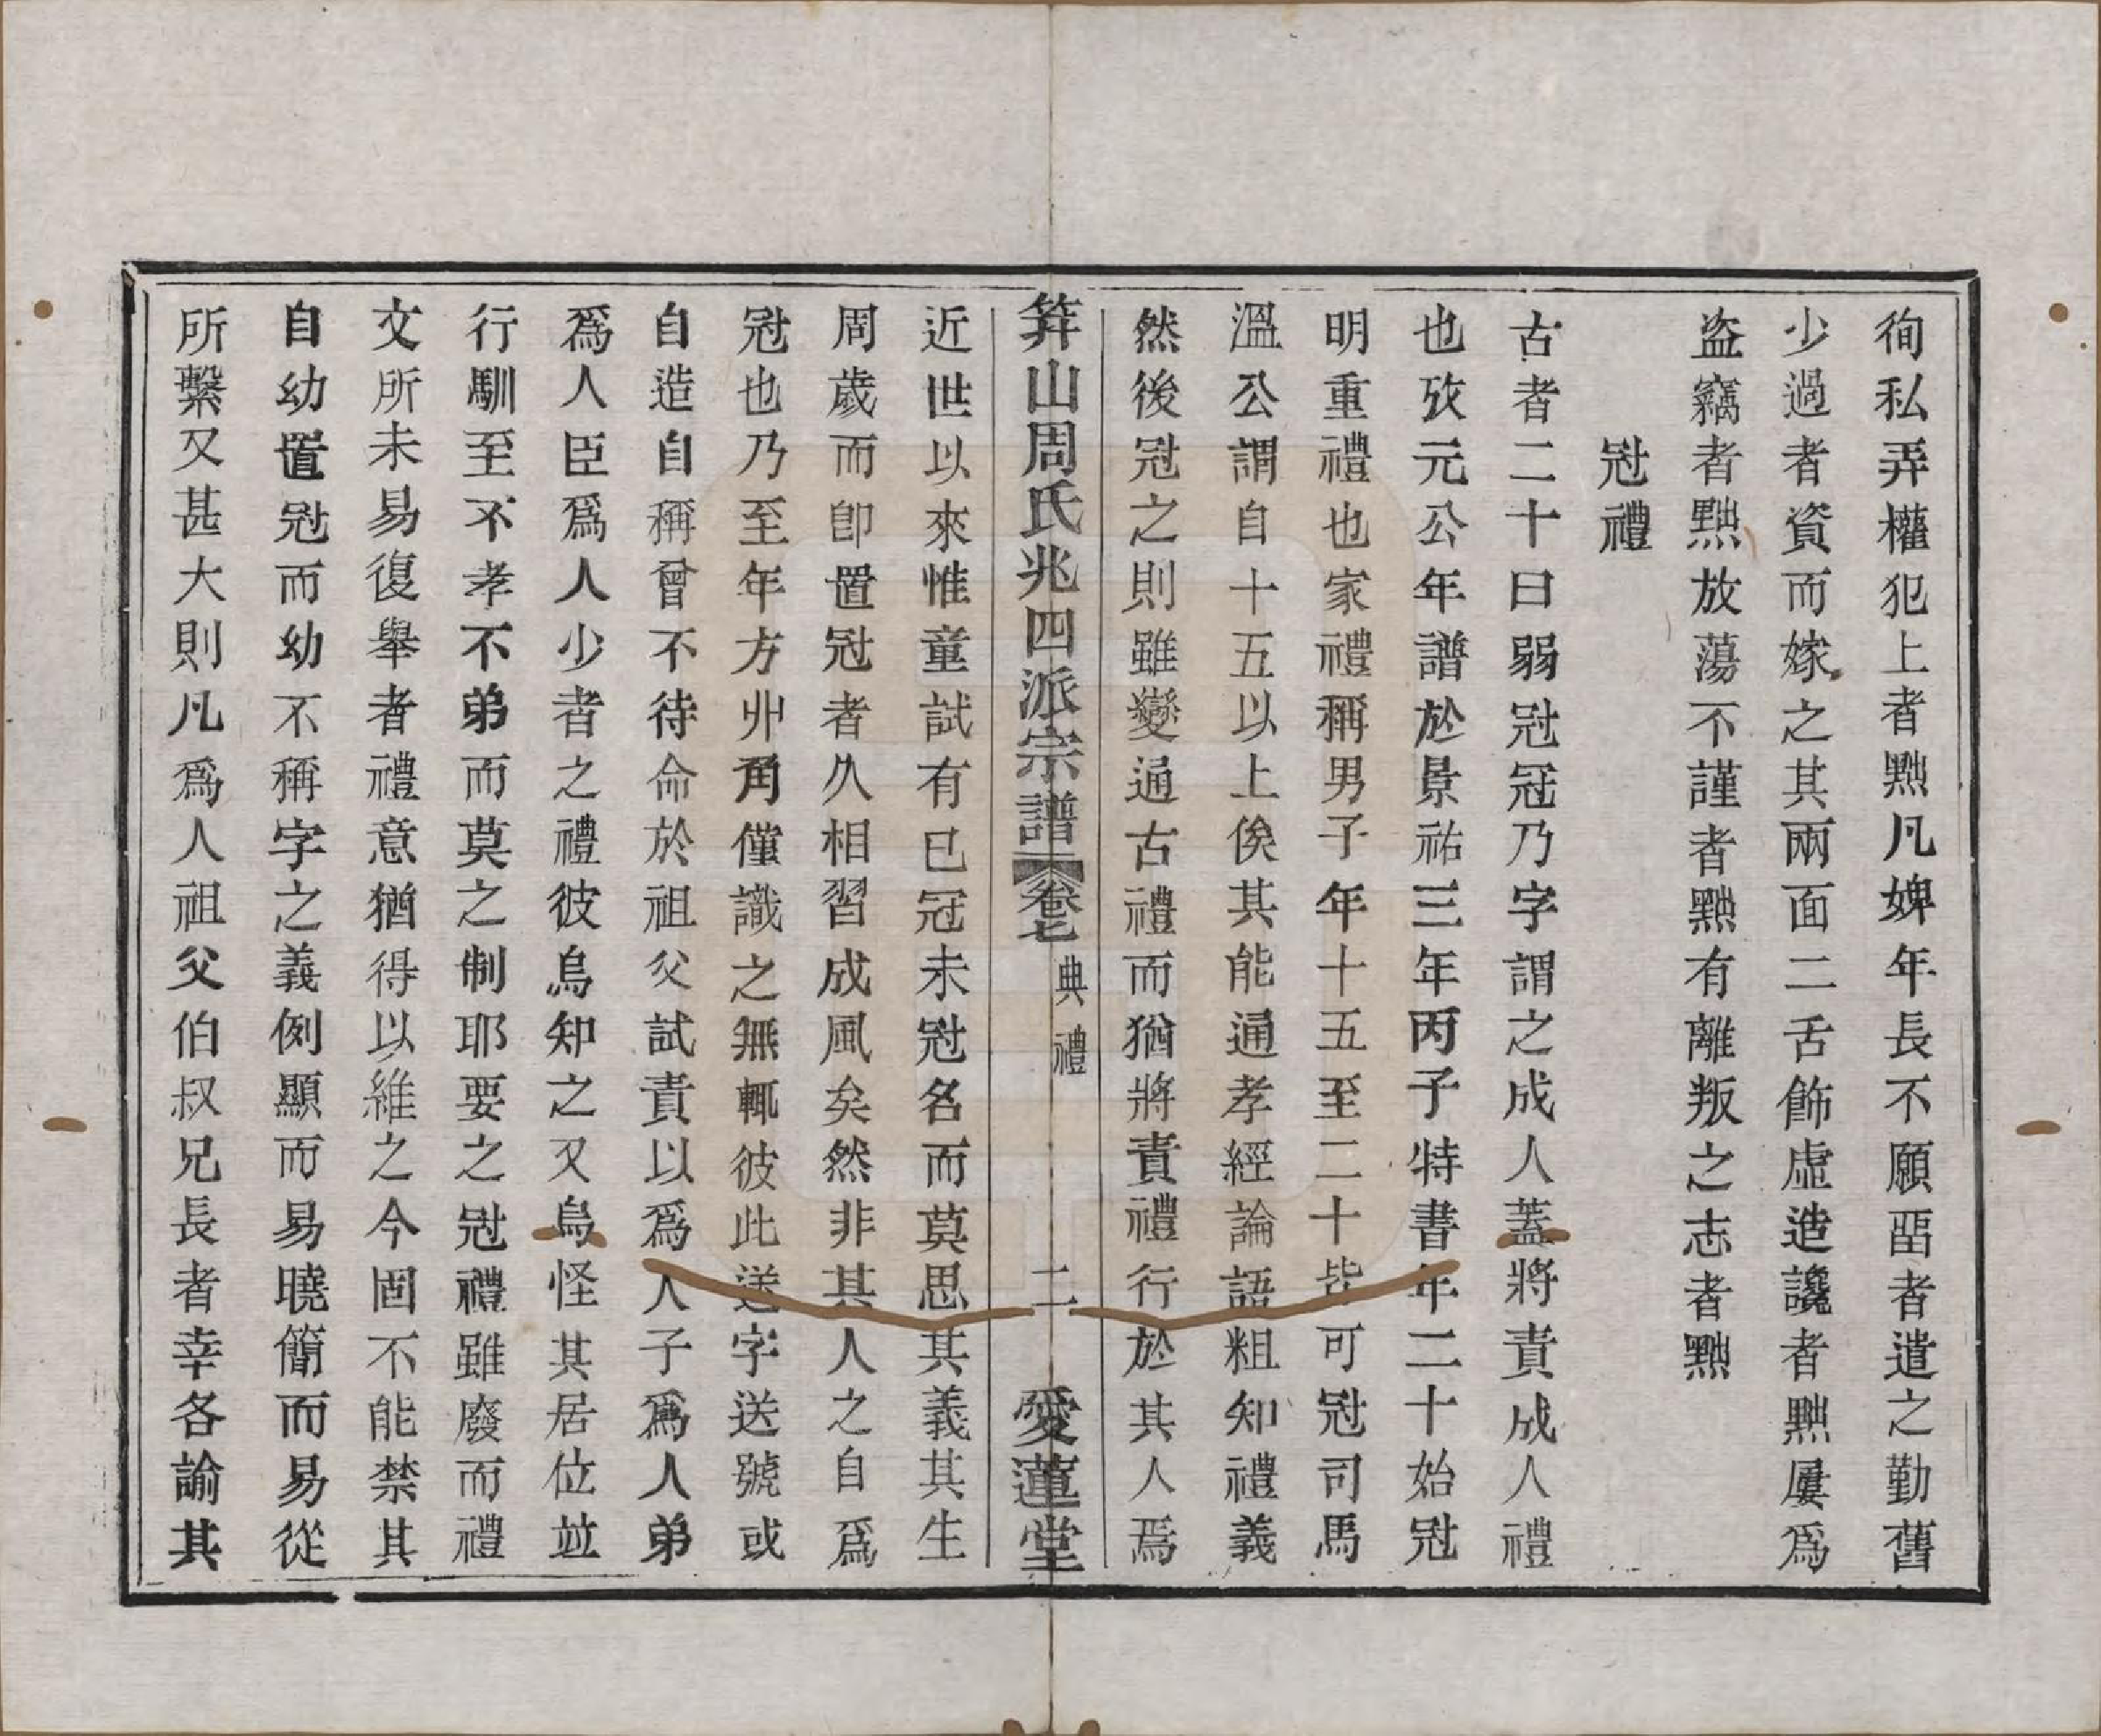 徇私弄權犯上者黜凡婢年長不願畱者遣之勤舊
少過者資而嫁之其兩面二舌飾虛造讒者黜屢爲
盜竊者黜放蕩不謹者黜有離叛之志者黜
冠禮
古者二十曰弱冠冠乃字謂之成人蓋將責成人禮
也攷元公年譜於景祐三年丙子特書年二十始冠
明重禮也家禮稱男子年十五至二十皆可冠司馬
溫公謂自十五以上俟其能通孝經論語粗知禮義
然後冠之則雖變通古禮而猶將責禮行於其人焉
筭山周氏兆四派宗譜 卷七 典禮 二 愛蓮堂
近世以來惟童試有已冠未冠名而莫思其義其生
周歲而卽置冠者久相習成風矣然非其人之自爲
冠也乃至年方丱角僅識之無輒彼此送字送號或
自造自稱曾不待命於祖父試責以爲人子爲人弟
爲人臣爲人少者之禮彼烏知之又烏怪其居位竝
行馴至不孝不弟而莫之制耶要之冠禮雖廢而禮
文所未易復舉者禮意猶得以維之今固不能禁其
自幼置冠而幼不稱字之義例顯而易曉簡而易從
所繫又甚大則凡爲人祖父伯叔兄長者幸各諭其